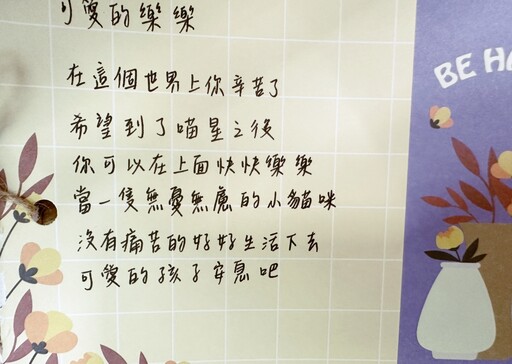 可愛的樂樂
在這個世界上你辛苦了
希望到了喵星之後
你可以在上面快快樂樂
當一隻無憂無慮的小貓咪
沒有痛苦的好好生活下去
可愛的孩子安息吧
BE HA